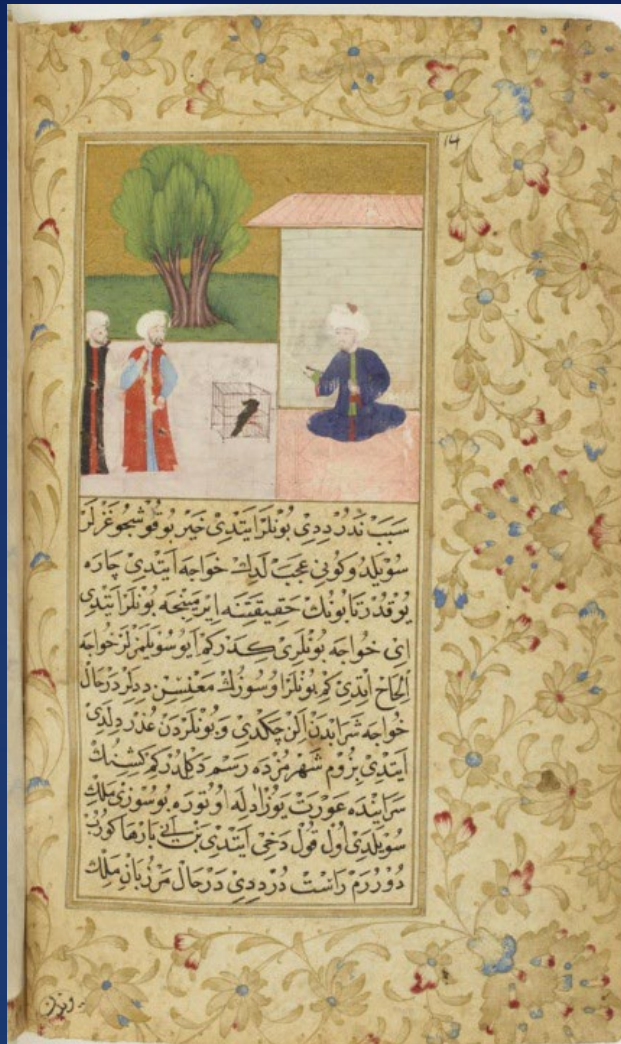 14
سَبَبْ نَدُرْ دِدِى بُونْلَرْ اَيْتِدِى خَيْر بُو قُوشْجُوغَزْلَرْ
سُويْلَدُوكُونِى عَجَبْ لَدِكْ خواجه اَيْتِدِى چَارَه
يُوقْدُرْ تَا بُونُكْ حَقِيقَتِنَه اِيرْمَيِنْجَه بُونْلَرْ اَيْتِدِى
اَىْ خُواجَه بُونْلَرِى كِمْ اَيُو سُويْلَمَزْلَرْ خواجه
اِلْحَاحْ اَيْتِدِى كِمْ بُونْلَرْ اُو سُوزُكْ مَعْنِيسِنْ دِدِيلَرْ دَرْحَالْ
خواجَه شَرَابْدَنْ اَلِنْ چَكْدِى وَبُونْلَرْدَنْ عُذُرْ دِلَدِى
اَيْتِدِى بِزُومْ شَهْرُمُزْدَه رَسِمْ دَكُلْدُرْ كِمْ كِشِينُكْ
سَرَايِنْدَه عَوْرَتْ يُوزْادلَه اوتُورَه بُو سُوزِى مَلِكْ
سُويْلَدِى اُولْ قُولْ دَخِى اَيْتِدِى بَنْ آنِى بَارْهَا كُورُبْ
دُورُرَمْ رَاسْتْ دُرْ دِدِى دَرْحَالْ مَرْزُبَانِ مَلِكْ